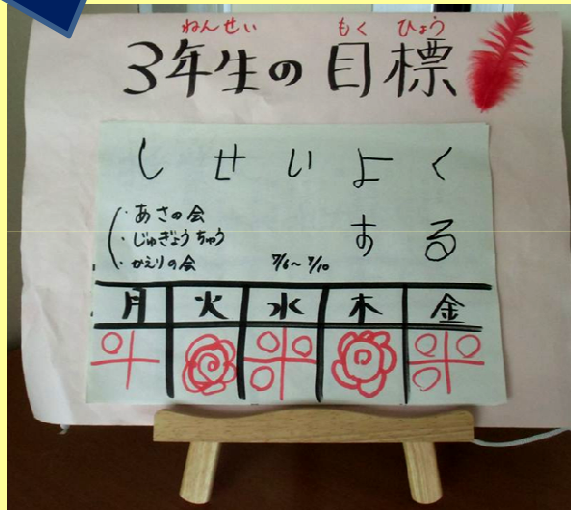 ねんせい もく ひょう
3年生の目標
しせいよく
・あさの会
する
・じゅぎょうちゅう
・かえりの会
7/6～7/10
月 火 水 木 金